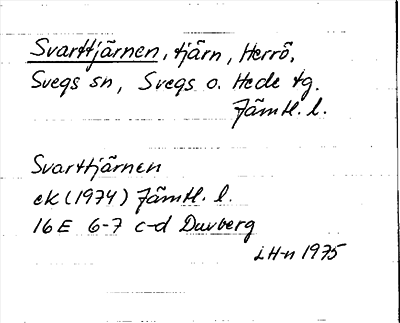 Svarttjärnen, tjärn, Herrö,
Svegs sn, Svegs o. Hede tg.
Jämtl. l.
Svarttjärnen
ek (1974) Jämtl. l.
16E 6-7 c-d Duvberg
LH-n 1975